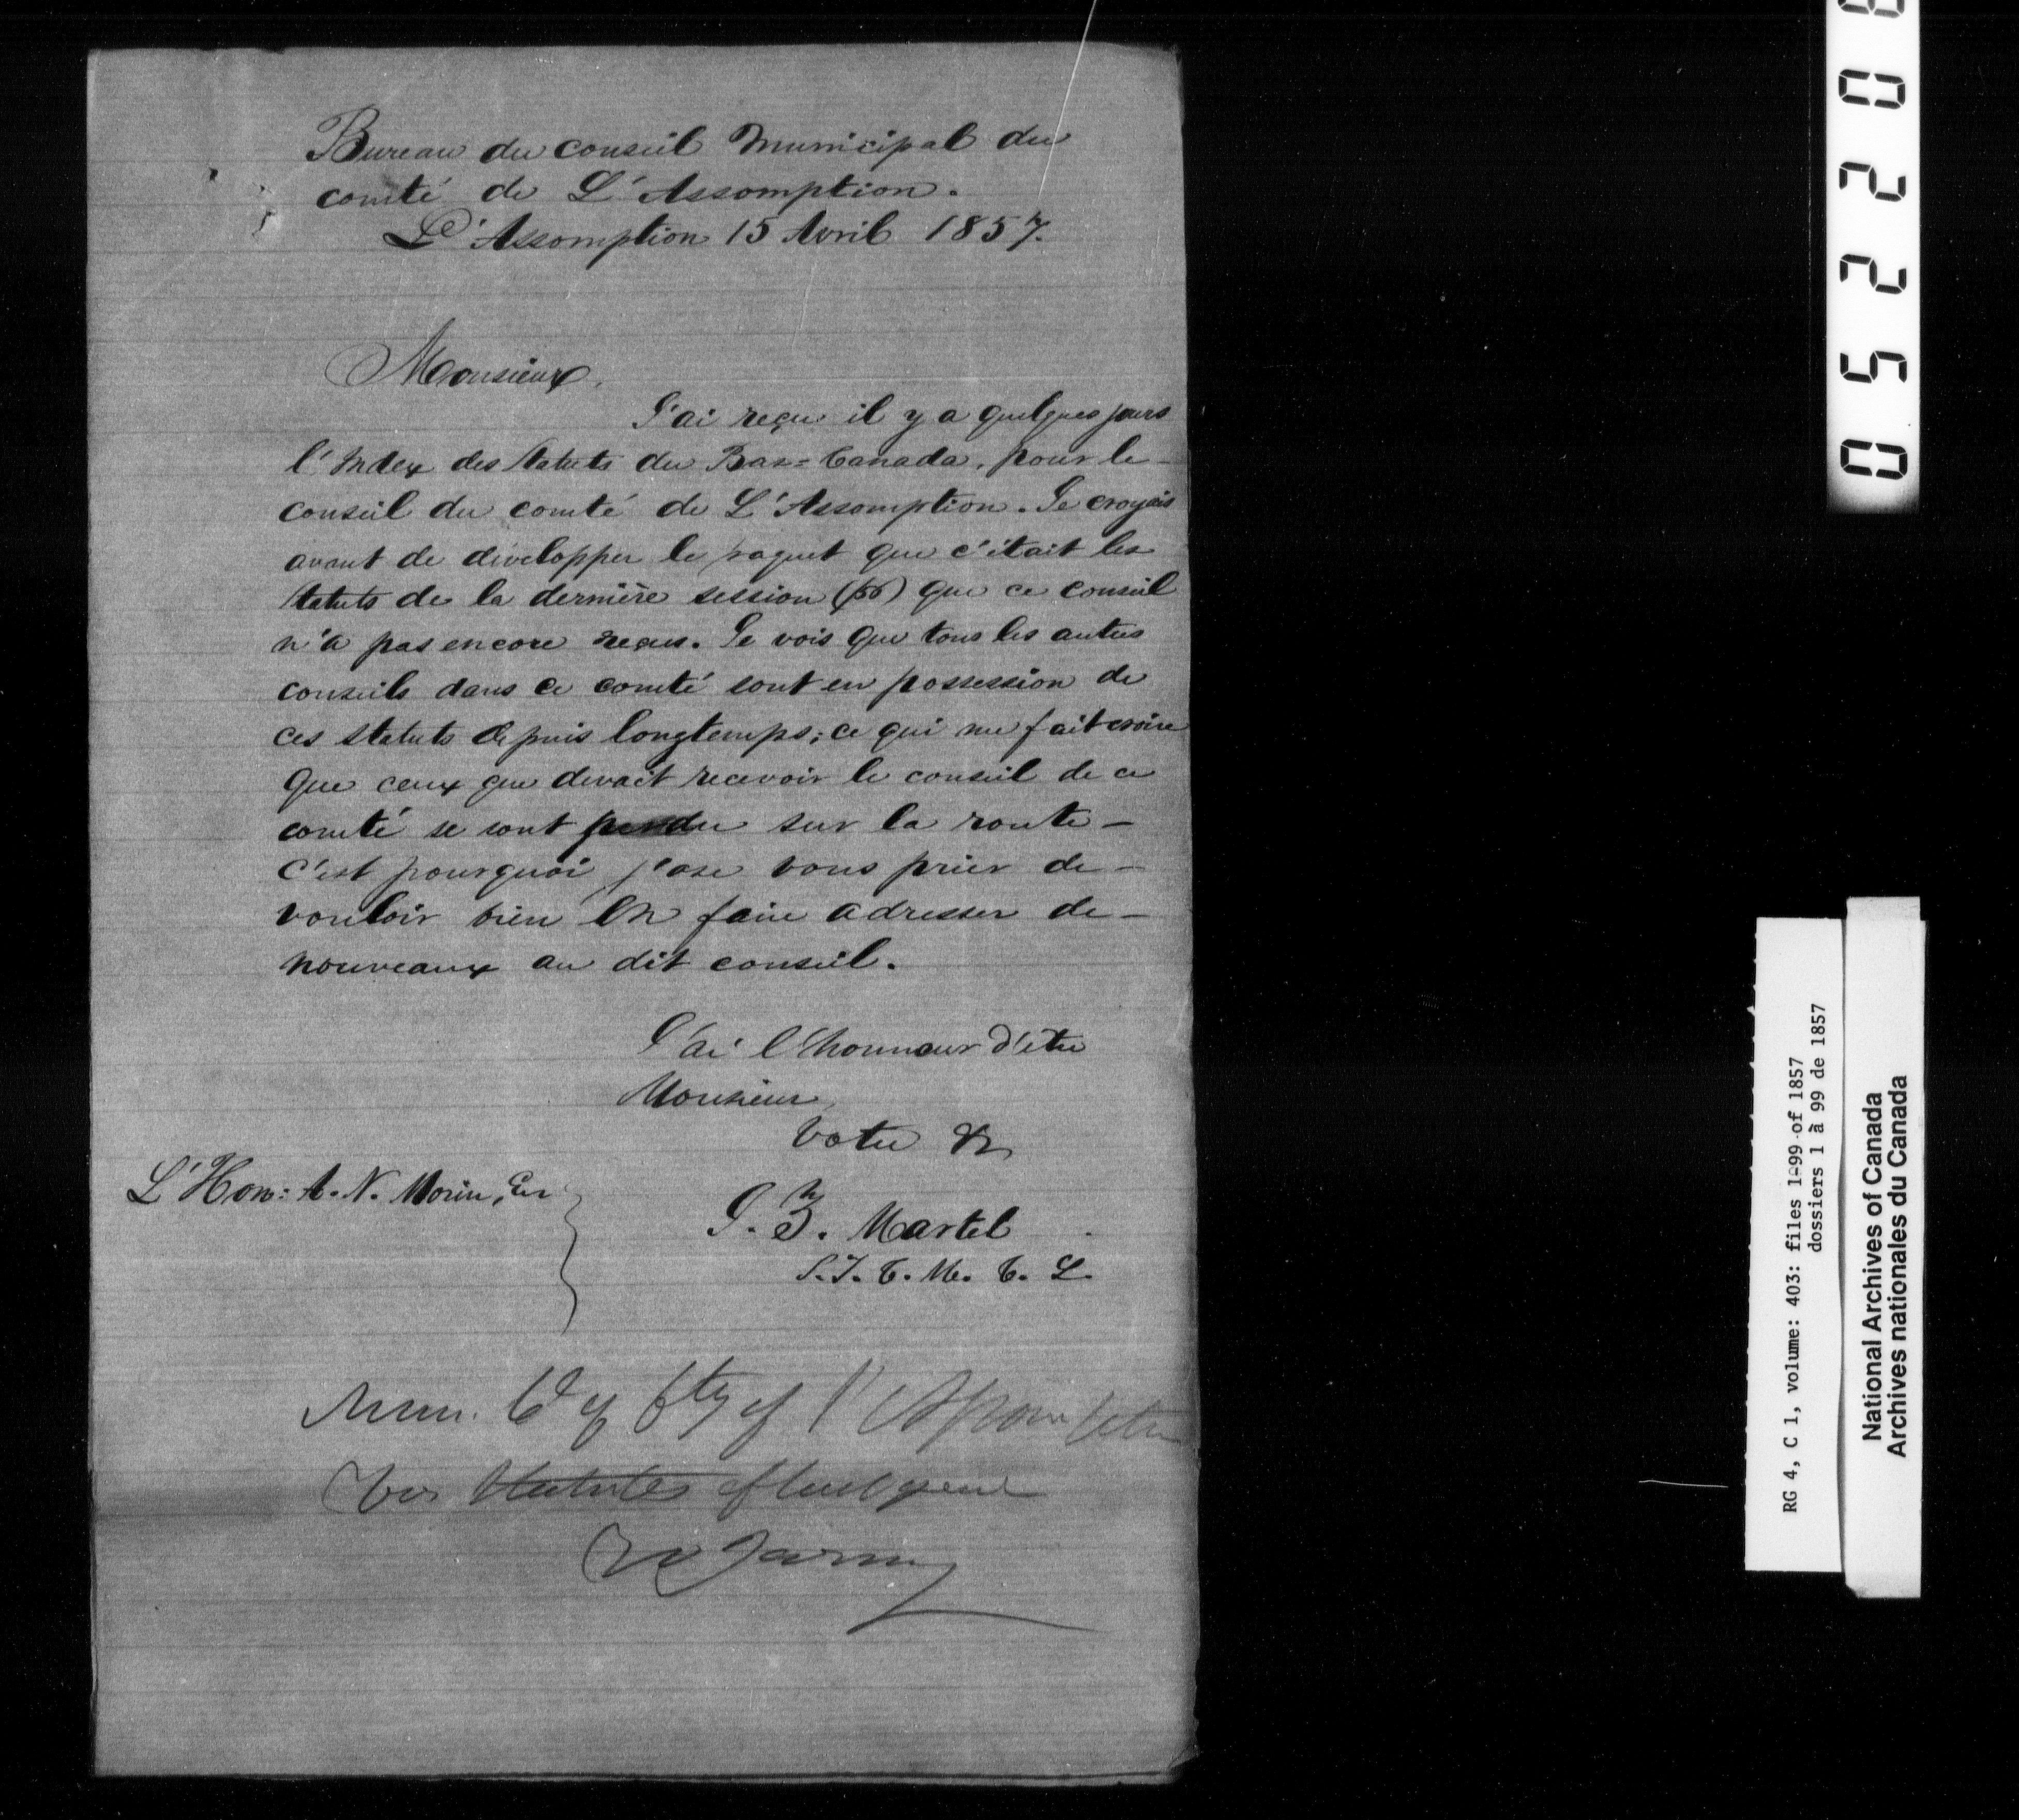 Bureau du conseil Municipal du
comté de L'Assomption.
L'Assomption 15 Avril 1857.
Monsieur,
J'ai reçu il y a quelques jours
l'Index des Statuts du Bas=Canada, pour le
conseil du comté de L'Assomption. Je croyais
avant de développer le paquet que c'était les
Statuts de la dernière session (56) que ce conseil
n'a pas encore reçus. Je vois que tous les autres
conseils dans ce comté sont en possession de
ces statuts depuis longtemps; ce qui me fait croire
que ceux que devait recevoir le conseil de ce
comté se sont perdu sur la route –
C'est pourquoi j'ose vous prier de –
vouloir bien en faire adresser de –
nouveaux au dit conseil.
J'ai l'honneur d'être
Monsieur
Votre &
L'Hon: A. N. Morin, Ecr
J. Z. Martel
S. T. C. M. C. L.
Mun. Cl of Cty of l'Assomption
Statutes of last year
0 5 2 2 0 8
RG 4, C 1, volume: 403: files 1-99 of 1857
dossiers 1 à 99 de 1857
National Archives of Canada
Archives nationales du Canada